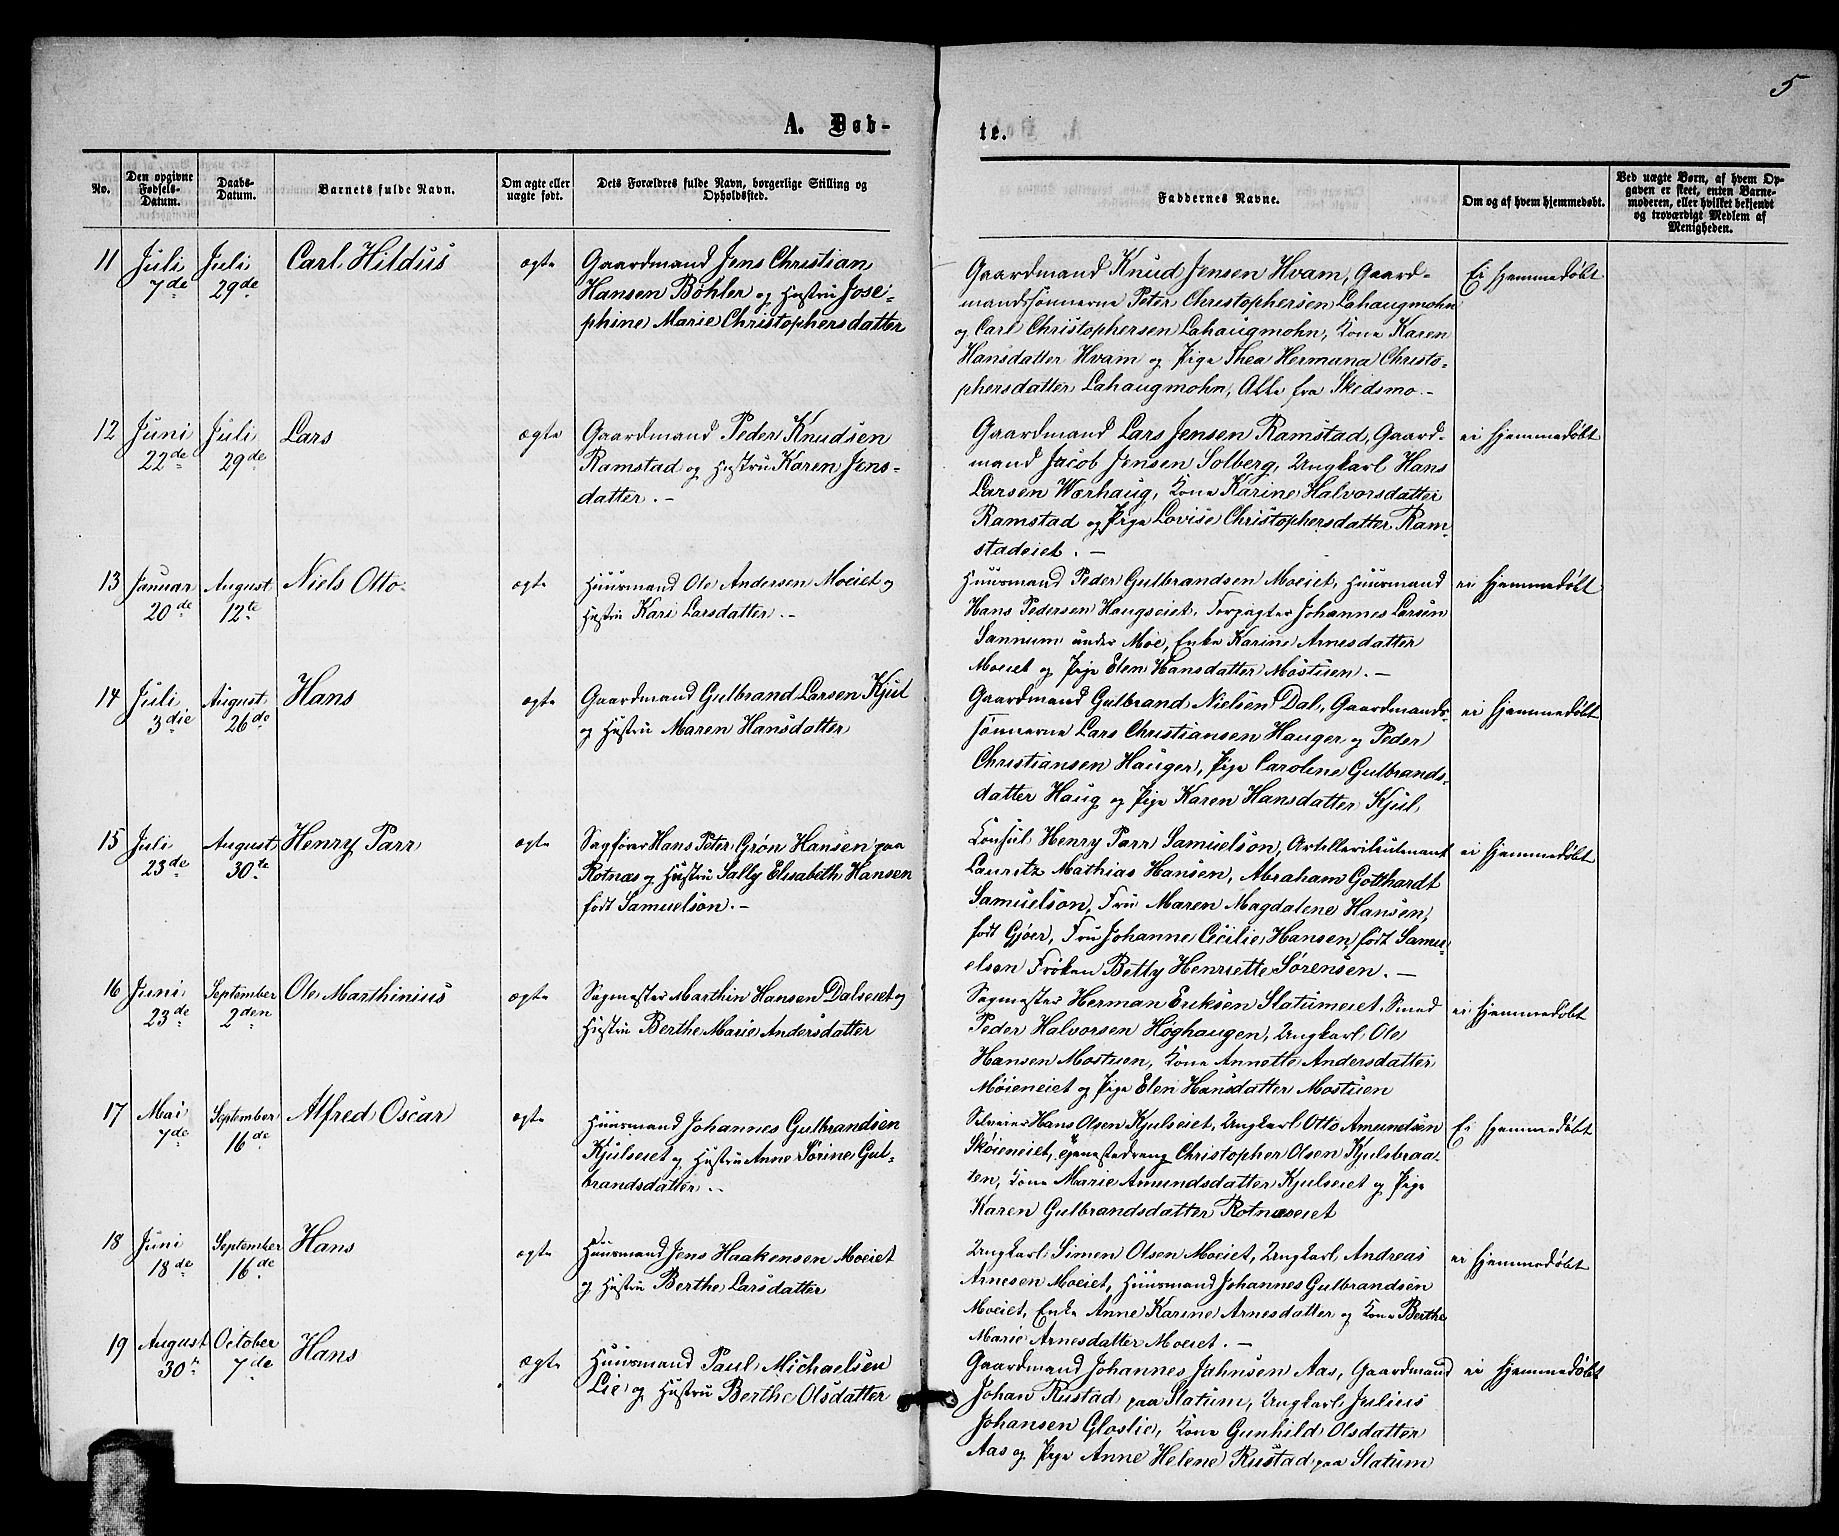 5
A. Døb-
te.
No.
Den opgivne Fødsels-Datum.
Daabs-Datum.
Barnets fulde Navn.
Om ægte eller uægte født.
Dets Forældres fulde Navn, borgerlige Stilling og Opholdssted.
Faddernes Navne.
Om og af hvem hjemmedøbt.
Ved uægte Børn, af hvem Opgaven er skeet, enten Barnemoderen, eller hvilket bekjendt og troværdigt Medlem af Menigheden.
11 Juli 7de Juli 29de Carl Hildus ægte
Gaardmand Jens Christian
Hansen Bøhler og Hustru Jose-
phine Marie Christophersdatter
Gaardmand Knud Jensen Hvam, Gaard-
mandssønnerne Peter Christophersen Lahaugmohn
og Carl Christophersen Lahaugmohn, Kone Karen
Hansdatter Hvam og Pige Thea Hermana Christo-
phersdatter Lahaugmohn, Alle fra Skedsmo.-
Ei hjemmedøbt
12 Juni 22de Juli 29de Lars ægte
Gaardmand Peder Knudsen
Ramstad og Hustru Karen Jens-
datter.-
Gaardmand Lars Jensen Ramstad, Gaard-
mand Jacob Jensen Solberg, Ungkarl Hans
Larsen Wærhaug, Kone Karine Halvorsdatter
Ramstad og Pige Lovise Christophersdatter Ram-
stadeiet.-
ei hjemmedøbt
13 Januar 20de August 12te Niels Otto ægte
Huusmand Ole Andersen Moeiet og
Hustru Kari Larsdatter.-
Huusmand Peder Gulbrandsen Moeiet, Huusmand
Hans Pedersen Haugseiet, Forpagter Johannes Larsen
Sannum under Moe, Enke Karine Arnesdatter
Moeiet og Pige Elen Hansdatter Mostuen.-
ei hjemmedøbt
14 Juli 3die August 26de Hans ægte
Gaardmand Gulbrand Larsen Kjul
og Hustru Maren Hansdatter
Gaardmand Gulbrand Nielsen Dal, Gaardmands-
sønnerne Lars Christiansen Hauger og Peder
Christiansen Hauger, Pige Caroline Gulbrands-
datter Haug og Pige Karen Hansdatter Kjul
ei hjemmedøbt
15 Juli 23de August 30te Henry Parr ægte
Sagfører Hans Peter Grøn Hansen paa
Rotnæs og Hustru Sally Elisabeth Hansen
født Samuelson.-
Consul Henry Parr Samuelson, Artillerilieutenant
Lauritz Mathias Hansen, Abraham Gotthardt
Samuelson, Fru Maren Magdalene Hansen,
født Gjøer, Fru Johanne Cecilie Hansen, født Samu-
elsen Frøken Betty Henriette Sørensen.-
ei hjemmedøbt
16 Juni 23de September 2den Ole Marthinius ægte
Sagmester Marthin Hansen Dalseiet og
Hustru Berthe Marie Andersdatter
Sagmester Herman Eriksen Slatumeiet, Smed
Peder Halvorsen Høghaugen, Ungkarl Ole
Hansen Mostuen, Kone Annette Andersdatter
Møieneiet og Pige Elen Hansdatter Mostuen
ei hjemmedøbt
17 Mai 7de September 16de Alfred Oscar ægte
Huusmand Johannes Gulbrandsen
Kjulseiet og Hustru Anne Sørine Gul-
brandsdatter.-
Hans Olsen Kjulseiet, Ungkarl Otto Amundsen
Skøieneiet, Tjenestedreng Christopher Olsen Kjulsbraa-
ten, Kone Marie Amundsdatter Kjulseiet og Pige
Karen Gulbrandsdatter Rotnæseiet
Ei hjemmedøbt
18 Juni 18de September 16de Hans ægte
Huusmand Jens Haakensen Moeiet
og Hustru Berthe Larsdatter
Ungkarl Simen Olsen Moeiet, Ungkarl Andreas
Arnesen Moeiet, Huusmand Johannes Gulbrandsen
Moeiet, Enke Anne Karine Arnesdatter og Kone Berthe
Marie Arnesdatter Moeiet.-
ei hjemmedøbt
19 August 30te October 7de Hans ægte
Huusmand Paul Michaelsen
Lie og Hustru Berthe Olsdatter
Gaardmand Johannes Jahnsen Aas, Gaardmand
Johan Rustad paa Slatum, Ungkarl Julius
Johansen Gloslie, Kone Gunhild Olsdatter
Aas og Pige Anne Helene Rustad paa Slatum
ei hjemmedøbt